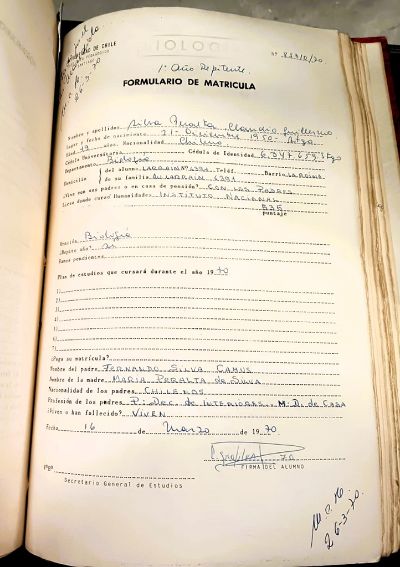 DE CHILE
BIOLOG
Nº
1º Año Repitente.
FORMULARIO DE MATRICULA
Nombre y apellidos Silva Peralta Claudio Guillermo
Lugar y fecha de nacimiento 21 Diciembre 1950. Stgo.
Edad 19 años. Nacionalidad Chileno
Cédula Universitaria Cédula de Identidad Stgo
Departamento Biología
Domicilio del alumno LARRAIN Nº Teléf. Barrio LA REINA
de su familia AV. LARRAIN
¿Vive con sus padres o en casa de pensión? CON LOS PADRES
Liceo donde cursó Humanidades INSTITUTO NACIONAL
puntaje
Mención Biología
¿Repite año? Si
Ramos pendientes
Plan de estudios que cursará durante el año 1970
1)
2)
3)
4)
5)
6)
7)
¿Pagó su matrícula?
Nombre del padre FERNANDO SILVA CAMUS
Nombre de la madre MARIA PERALTA DE SILVA
Nacionalidad de los padres CHILENOS
Profesión de los padres P: DEC. DE INTERIORES. M. D. DE CASA
¿Viven o han fallecido? VIVEN
Fecha 16 de Marzo de 1970
FIRMA DEL ALUMNO
Vºgº
Secretario General de Estudios
26-3-70